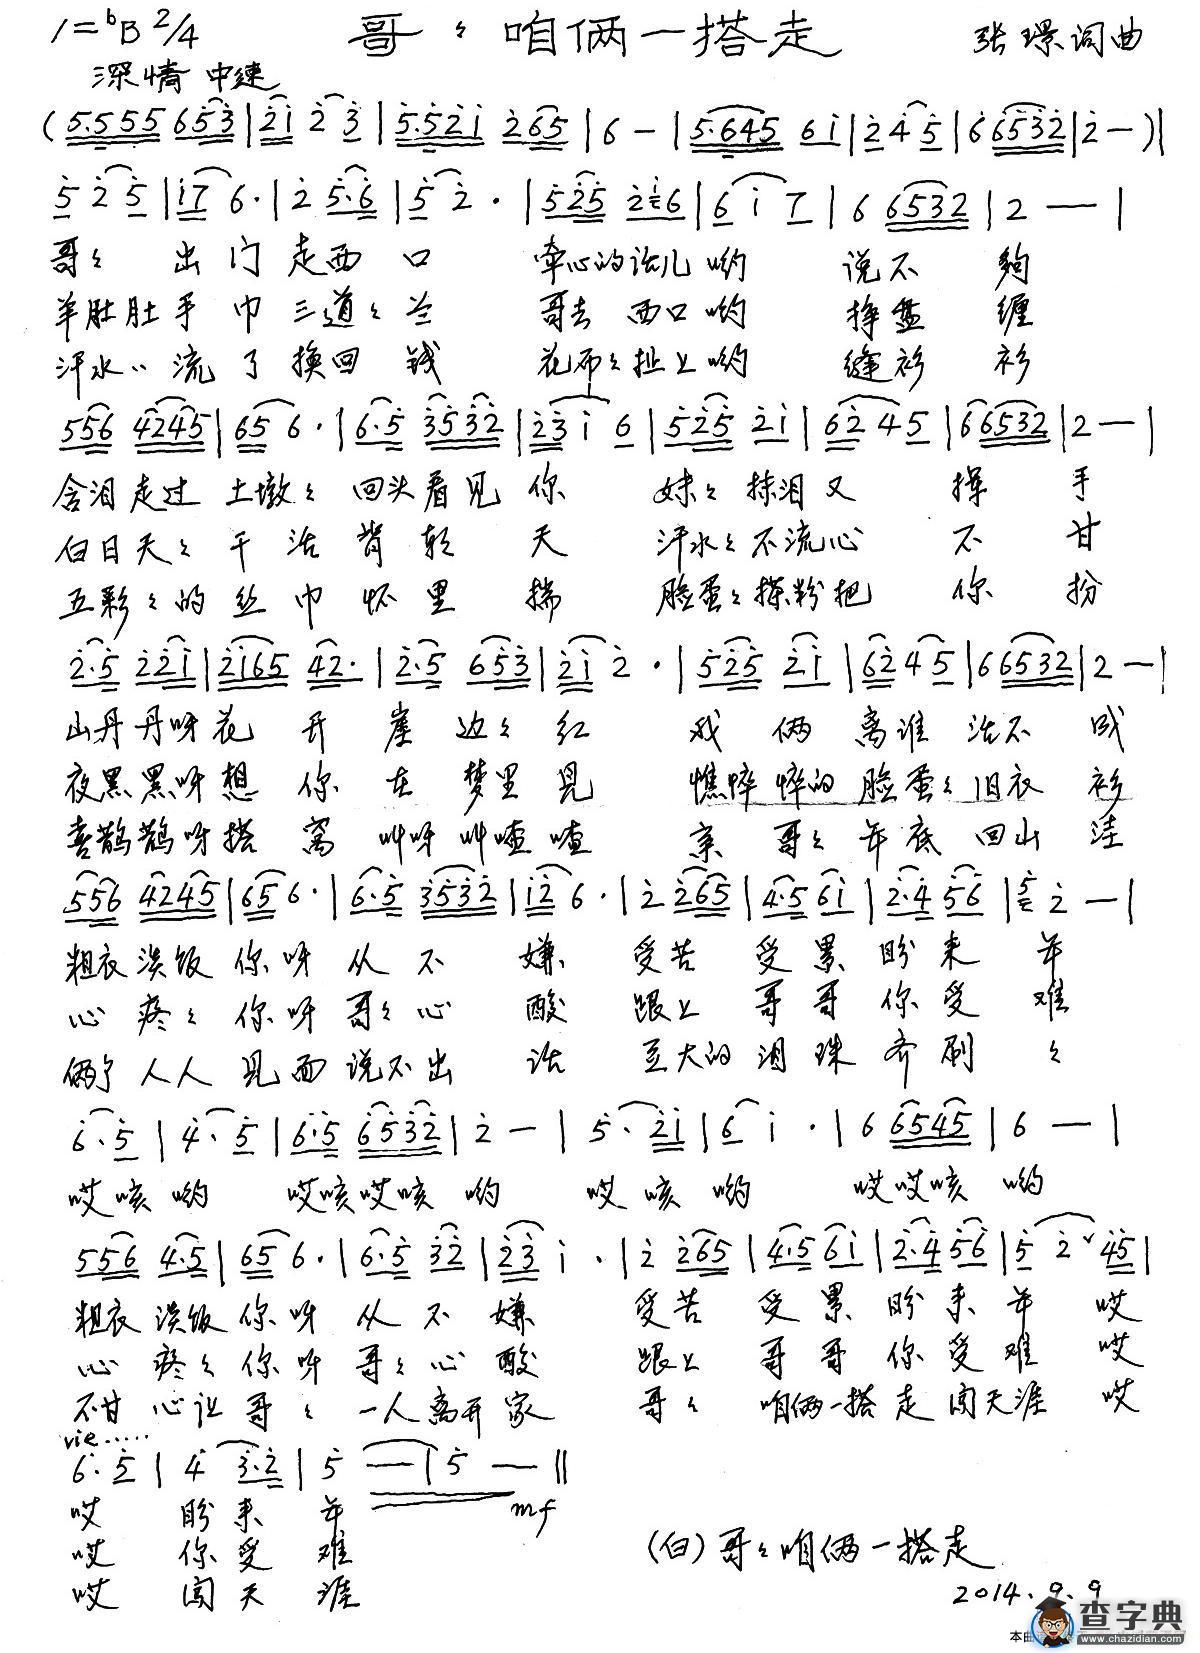 1=♭B 2/4
哥々咱俩一搭走
张璟词曲
深情 中速
(5.555 653|21 2 3|5.521 265|6 -|5.645 61|2 4 5|6 6532|2 -)|
5 2 5|17 6.|2 5.6|5 2.|525 216|6 1 7|6 6532|2 -|
哥々 出门走西口 牵心的话儿哟 说不够
羊肚肚手巾三道々兰 哥去西口哟 挣盘缠
汗水々流了换回钱 花布々扯上哟 缝衫衫
556 4245|65 6.|6.5 3532|23 1 6|525 21|62 4 5|6 6532|2 -|
含泪走过土墩々回头看见你 妹々抹泪又 挥手
白日天々干活背朝天 汗水々不流心不甘
五彩々的丝巾怀里揣 脸蛋々搽粉把你扮
2.5 221|2165 42.|2.5 653|21 2.|525 21|62 4 5|6 6532|2 -|
山丹丹呀花开崖边々红 我俩离谁活不成
夜黑黑呀想你在梦里见 憔悴悴的脸蛋々旧衣衫
喜鹊鹊呀搭窝叫呀叫喳喳 亲哥々年底回山洼
556 4245|65 6.|6.5 3532|12 6.|2 265|4.5 61|2.4 56|5 2 -|
粗衣淡饭你呀从不嫌 受苦受累盼来年
心疼々你呀哥々心酸 跟上哥哥你受难
俩个人人见面说不出话 豆大的泪珠齐刷々
6.5|4.5|6.5 6532|2 -|5.21|6 1.|6 6545|6 -|
哎咳哟 哎咳哎咳哟 哎咳哟 哎哎咳哟
556 4.5|65 6.|6.5 32|23 1.|2 265|4.5 61|2.4 56|5 2ˇ45|
粗衣淡饭你呀从不嫌 受苦受累盼来年 哎
心疼々你呀哥々心酸 跟上哥哥你受难 哎
不甘心让哥々一人离开家 哥々咱俩一搭走闯天涯 哎
vie......
6.5|4 3.2|5 -|5 -||
mf
哎 盼来年
哎 你受难
哎 闯天涯
(白)哥々咱俩一搭走
2014.9.9
查字典
www.chazidian.com
本曲